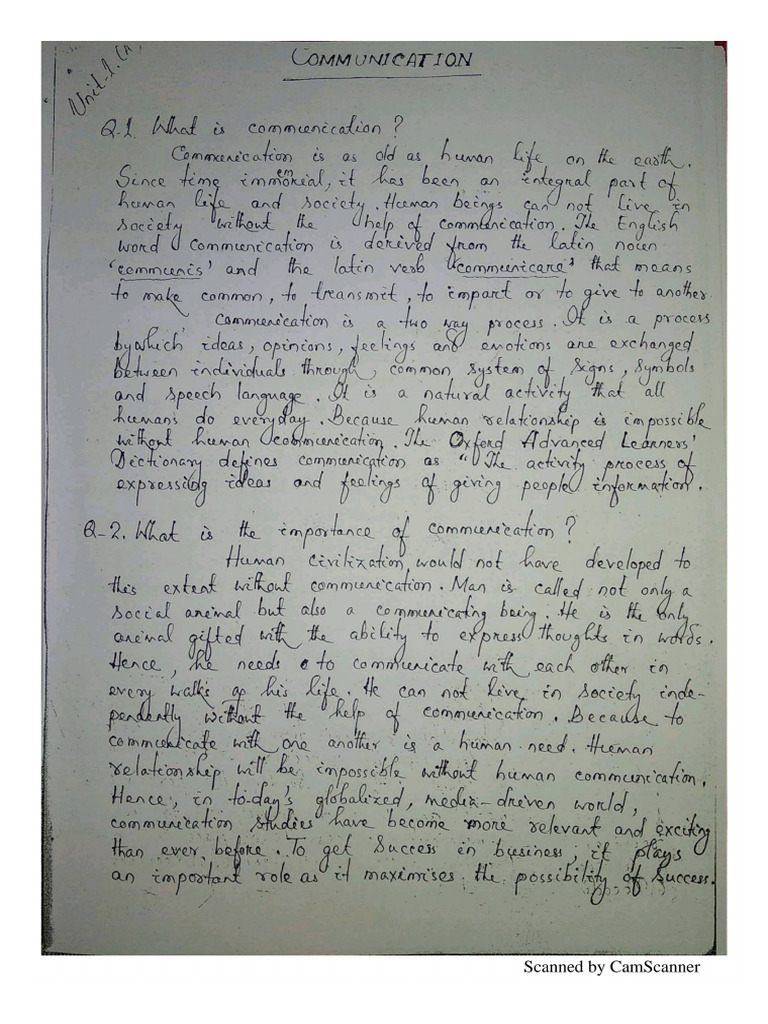 Unit-1.(A)
COMMUNICATION
Q-1. What is communication?
Communication is as old as human life on the earth.
Since time immemorial, it has been an integral part of
human life and society. Human beings can not live in
society without the help of communication. The English
word communication is derived from the latin noun
'communis' and the latin verb "communicare" that means
to make common, to transmit, to impart or to give to another.
Communication is a two way process. It is a process
by which ideas, opinions, feelings and emotions are exchanged
between individuals through common system of signs, symbols
and speech language. It is a natural activity that all
humans do everyday. Because human relationship is impossible
without human communication. The Oxford Advanced Learners'
Dictionary defines communication as "The activity process of
expressing ideas and feelings of giving people information.
Q-2. What is the importance of communication?
Human civilization would not have developed to
this extent without communication. Man is called not only a
social animal but also a communicating being. He is the only
animal gifted with the ability to express thoughts in words.
Hence, he needs to communicate with each other in
every walks of his life. He can not live in society inde-
pendently without the help of communication. Because to
communicate with one another is a human need. Human
relationship will be impossible without human communication.
Hence, in to-day's globalized, media-driven world,
communication studies have become more relevant and exciting
than ever before. To get success in business, it plays
an important role as it maximises the possibility of success.
Scanned by CamScanner